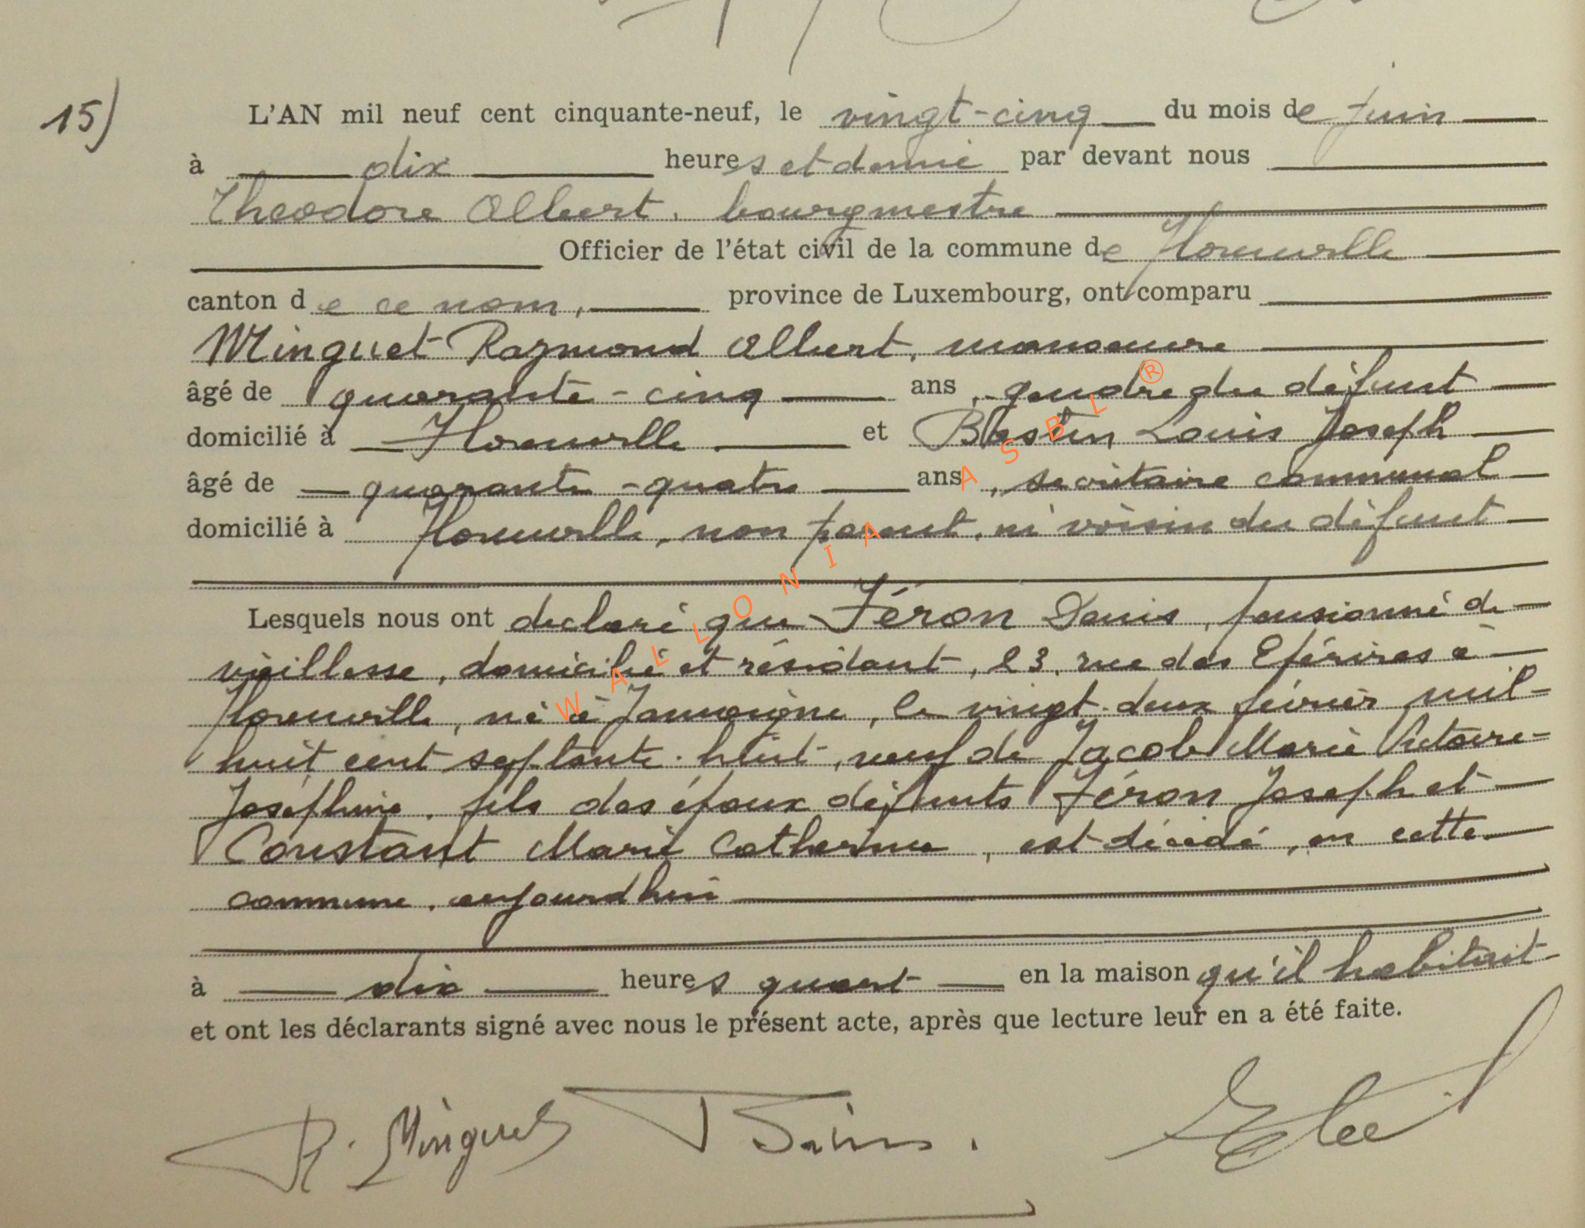 15)
L'AN mil neuf cent cinquante-neuf, le vingt-cinq du mois de Juin
à dix heures et demie par devant nous
Theodore Albert, bourgmestre
Officier de l'état civil de la commune de Florenville
canton de ce nom, province de Luxembourg, ont comparu
Minguet Raymond Albert, manoeuvre
âgé de quarante-cinq ans, gendre du défunt
domicilié à Florenville et Bastin Louis Joseph
âgé de quarante-quatre ans, secrétaire communal
domicilié à Florenville, non parent, ni voisin du défunt
Lesquels nous ont déclaré que Féron Denis, pensionné de
vieillesse, domicilié et résidant, 23, rue des Epérires à
Florenville, né à Jamoigne, le vingt-deux février mil
huit cent septante-huit, veuf de Jacob Marie Victoire
Joséphine, fils des époux défunts Féron Joseph et
Constant Marie Catherine, est décédé, en cette
commune, aujourd'hui
à dix heures quart en la maison qu'il habitait
et ont les déclarants signé avec nous le présent acte, après que lecture leur en a été faite.
R. Minguet
WALLONIA ASBL ®